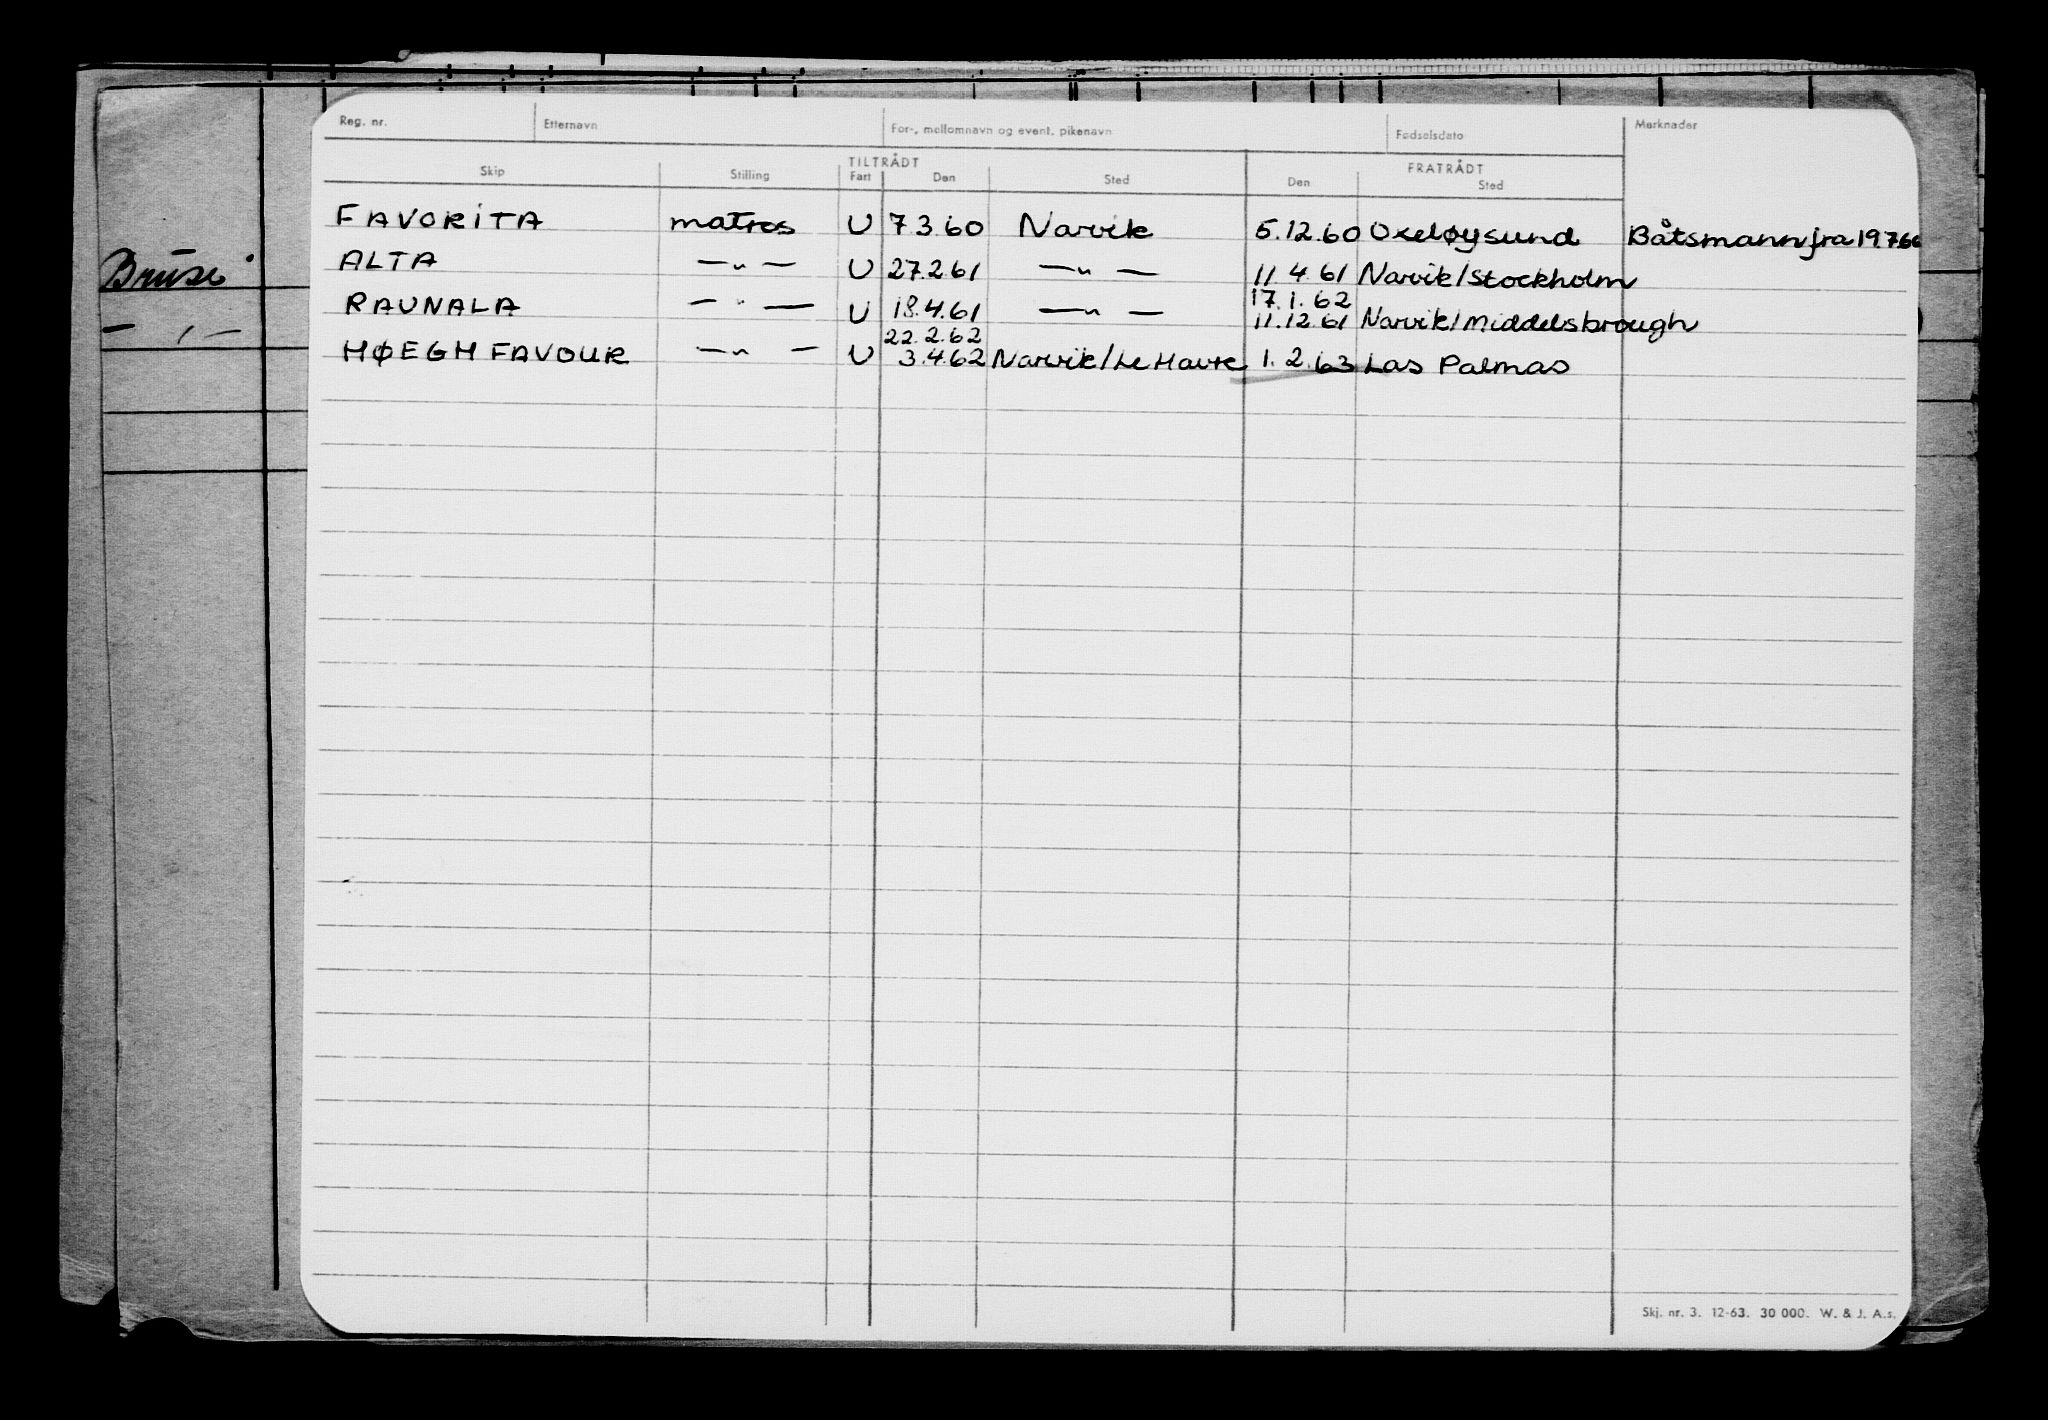 Reg. nr. Etternavn For-, mellomnavn og event. pikenavn Fødselsdato Merknader
TILTRÅDT FRATRÅDT
Skip Stilling Fart Den Sted Den Sted
FAVORITA matros U 7 3.60 Narvik 5.12.60 Oxeløysund Båtsmann fra 19.7.60
ALTA — " — U 27.2.61 — " — 11.4.61 Narvik/Stockholm
17.1.62
RAUNALA — " — U 18.4.61 — " — 11.12.61 Narvik/Middelsbrough
22.2.62
HØEGH FAVOUR — " — U 3.4.62 Narvik/Le Havre 1.2.63 Las Palmas
— " —
Skj. nr. 3. 12-63. 30 000. W. & J. A.s.